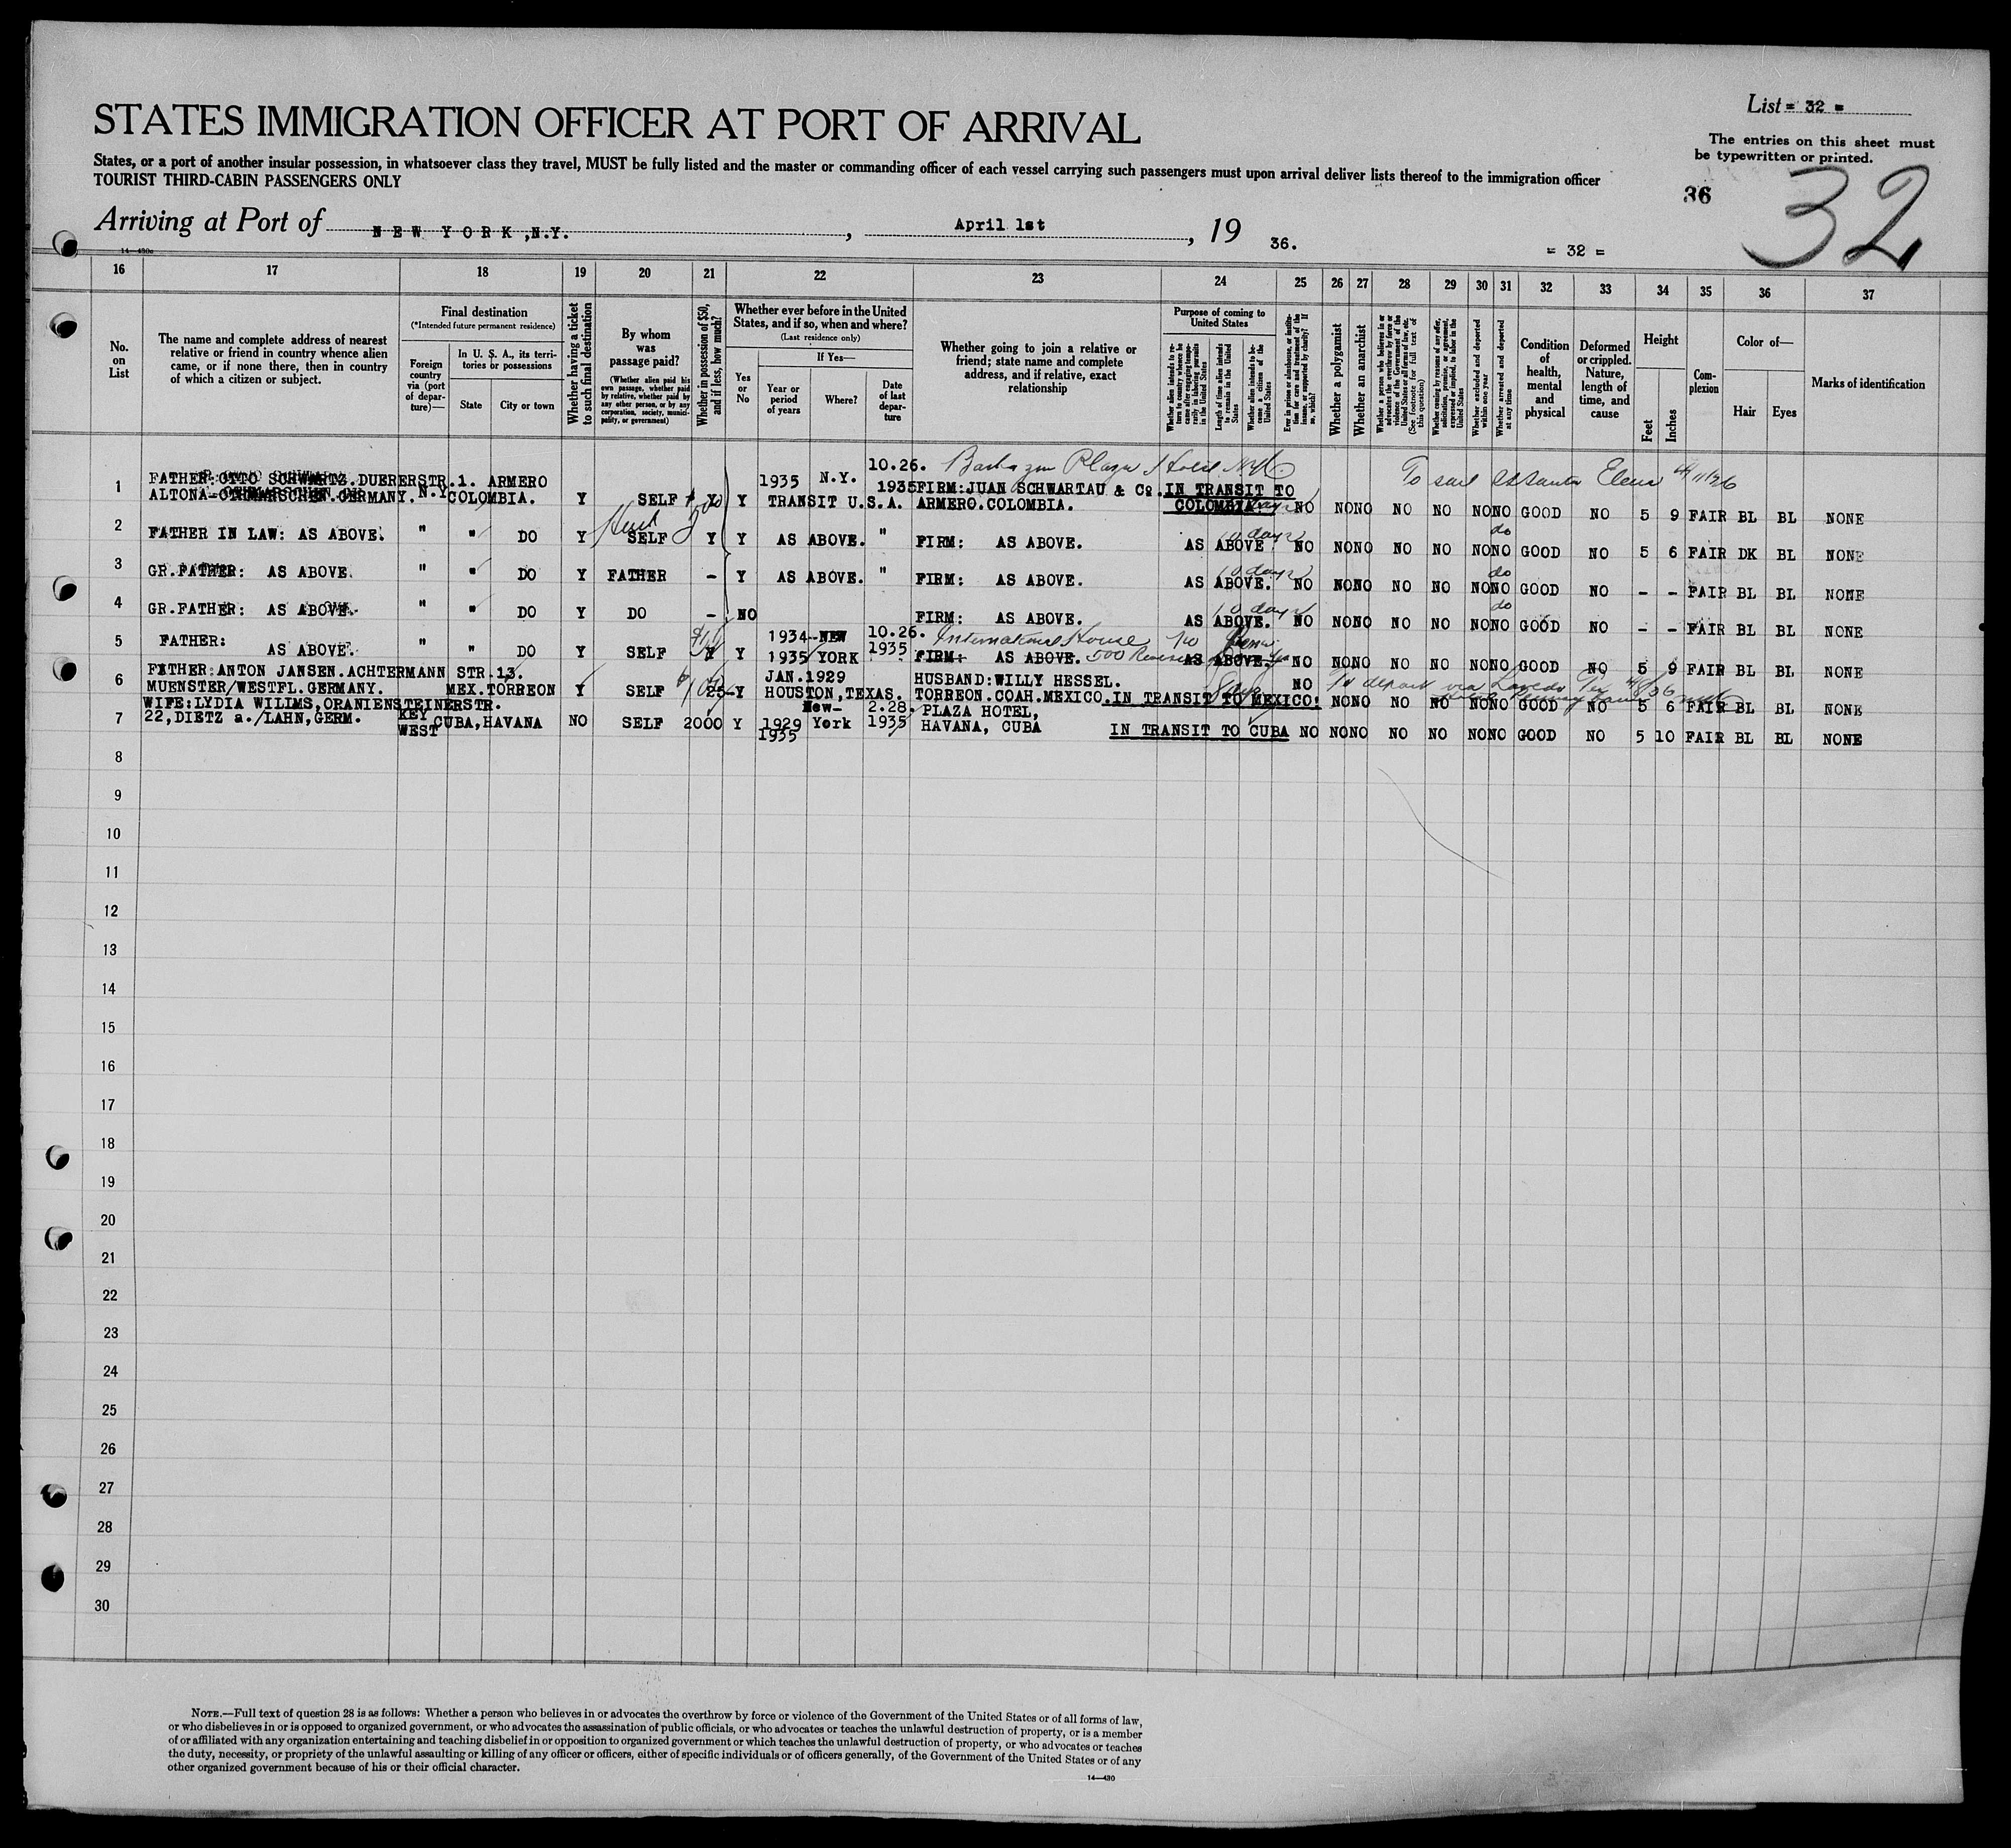 List = 32 =
STATES IMMIGRATION OFFICER AT PORT OF ARRIVAL
The entries on this sheet must
be typewritten or printed.
States, or a port of another insular possession, in whatsoever class they travel, MUST be fully listed and the master or commanding officer of each vessel carrying such passengers must upon arrival deliver lists thereof to the immigration officer
TOURIST THIRD-CABIN PASSENGERS ONLY
36
32
Arriving at Port of NEW YORK ,N.Y. , April 1st , 19 36.
= 32 =
14—430a
16 17 18 19 20 21 22 23 24 25 26 27 28 29 30 31 32 33 34 35 36 37
No. on List
The name and complete address of nearest
relative or friend in country whence alien
came, or if none there, then in country
of which a citizen or subject.
Final destination
(*Intended future permanent residence)
Foreign country via (port of departure)—
In U. S. A., its territories or possessions
State
City or town
Whether having a ticket to such final destination
By whom was passage paid?
(Whether alien paid his own passage, whether paid by relative, whether paid by any other person, or by any corporation, society, municipality, or government)
Whether in possession of $50, and if less, how much?
Whether ever before in the United
States, and if so, when and where?
(Last residence only)
Yes or No
If Yes—
Year or period of years
Where?
Date of last departure
Whether going to join a relative or
friend; state name and complete
address, and if relative, exact
relationship
Purpose of coming to United States
Length of time alien intends to remain in the United States
Whether alien intends to become a citizen of the United States
Whether a polygamist
Whether an anarchist
Whether excluded and deported within one year
Whether arrested and deported at any time
Condition of health, mental and physical
Deformed or crippled. Nature, length of time, and cause
Height
Feet
Inches
Complexion
Color of—
Hair
Eyes
Marks of identification
1 FATHER:OTTO SCHWARTZ.DUERERSTR.1. ARMERO 1935 N.Y. 10.26. Plaza Hotel To sail Santa Elena 4/11/36
ALTONA-OTHMARSCHEN.GERMANY. N.Y. COLOMBIA. Y SELF Y Y TRANSIT U.S.A. 1935 FIRM:JUAN SCHWARTAU & Co. ARMERO.COLOMBIA. IN TRANSIT TO COLOMBIA NO NO NO NO NO NO NO GOOD NO 5 9 FAIR BL BL NONE
2 FATHER IN LAW: AS ABOVE. " " DO Y SELF Y Y AS ABOVE. " FIRM: AS ABOVE. AS ABOVE. 10 days NO NO NO NO NO NO NO do GOOD NO 5 6 FAIR DK BL NONE
3 GR.FATHER: AS ABOVE. " " DO Y FATHER - Y AS ABOVE. " FIRM: AS ABOVE. AS ABOVE. 10 days NO NO NO NO NO NO NO do GOOD NO - - FAIR BL BL NONE
4 GR.FATHER: AS ABOVE. " " DO Y DO - NO FIRM: AS ABOVE. AS ABOVE. 10 days NO NO NO NO NO NO NO do GOOD NO - - FAIR BL BL NONE
5 FATHER: AS ABOVE. " " DO Y SELF Y Y 1934- NEW 10.26. International House
1935 YORK 1935 FIRM: AS ABOVE. 500 AS ABOVE. NO NO NO NO NO NO NO GOOD NO 5 9 FAIR BL BL NONE
6 FATHER:ANTON JANSEN.ACHTERMANN STR.13. JAN.1929 HUSBAND:WILLY HESSEL. NO To depart via Laredo Tex 4/8/36
MUENSTER/WESTFL.GERMANY. MEX.TORREON Y SELF 25- Y HOUSTON,TEXAS. TORREON.COAH.MEXICO. IN TRANSIT TO MEXICO: NO NO NO NO NO NO GOOD NO 5 6 FAIR BL BL NONE
7 WIFE:LYDIA WILIMS,ORANIENSTEINERSTR. New- 2.28. PLAZA HOTEL,
22,DIETZ a./LAHN,GERM. KEY WEST CUBA,HAVANA NO SELF 2000 Y 1929 1935 York 1935 HAVANA, CUBA IN TRANSIT TO CUBA NO NO NO NO NO NO NO GOOD NO 5 10 FAIR BL BL NONE
8
9
10
11
12
13
14
15
16
17
18
19
20
21
22
23
24
25
26
27
28
29
30
NOTE.—Full text of question 28 is as follows: Whether a person who believes in or advocates the overthrow by force or violence of the Government of the United States or of all forms of law,
or who disbelieves in or is opposed to organized government, or who advocates the assassination of public officials, or who advocates or teaches the unlawful destruction of property, or is a member
of or affiliated with any organization entertaining and teaching disbelief in or opposition to organized government or which teaches the unlawful destruction of property, or who advocates or teaches
the duty, necessity, or propriety of the unlawful assaulting or killing of any officer or officers, either of specific individuals or of officers generally, of the Government of the United States or of any
other organized government because of his or their official character.
14—430